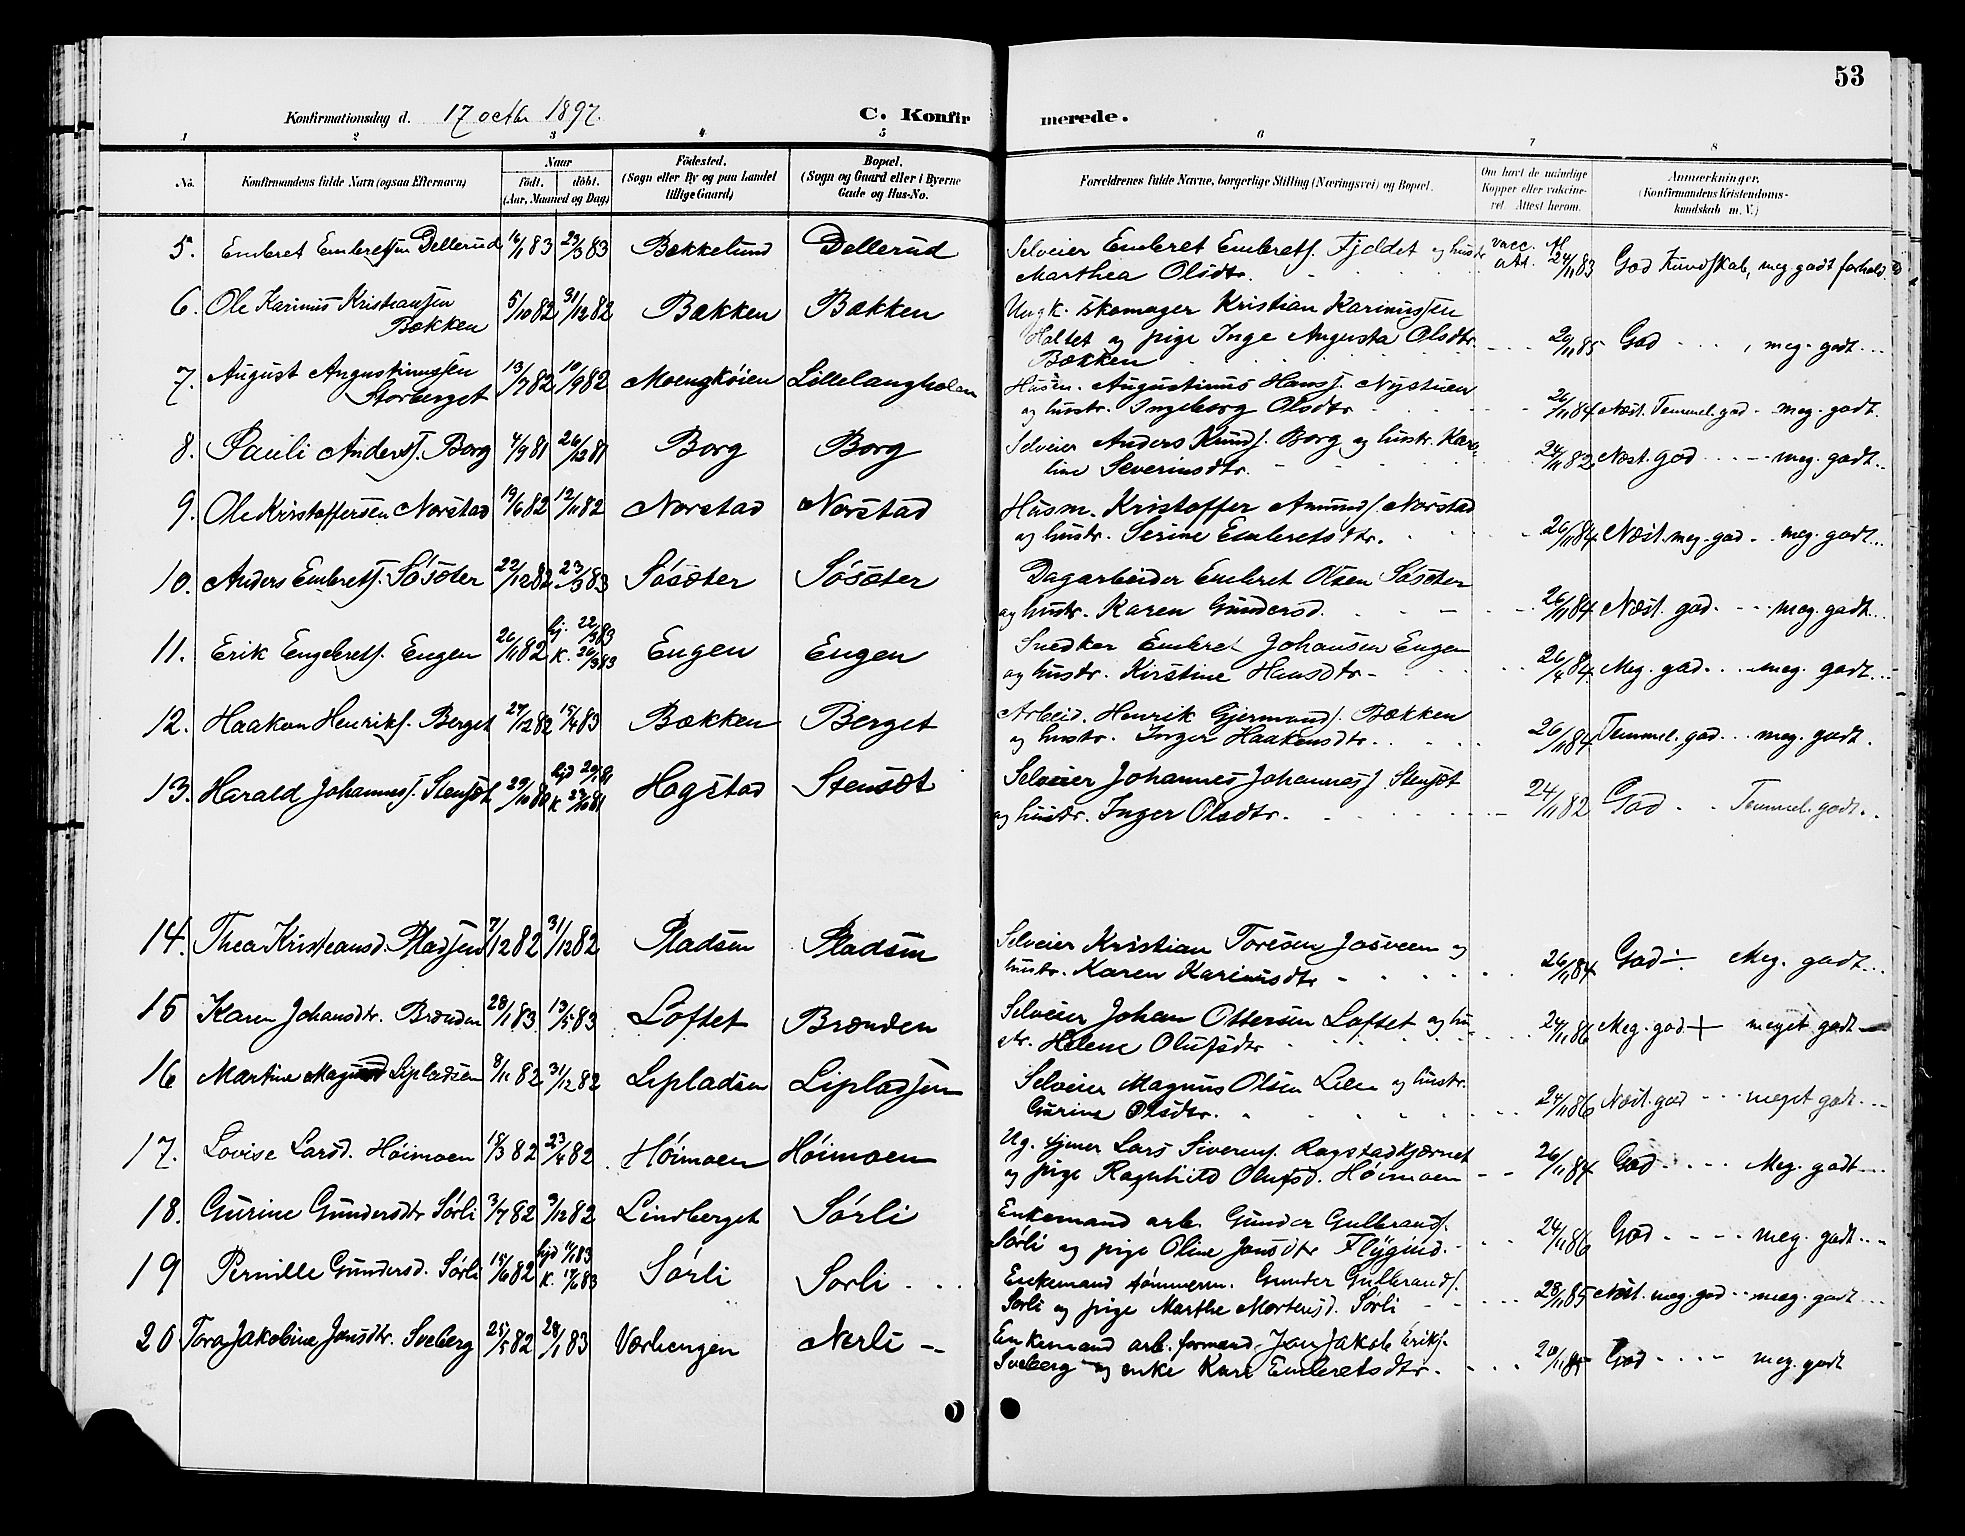 53
Konfirmationsdag d. 17 octbr 1897. C. Konfirmerede.
1 2 3 4 5 6 7 8
No. Konfirmandens fulde Navn (ogsaa Efternavn) Naar födt. döbt. (Aar, Maaned og Dag) Födested. (Sogn eller By og paa Landet tillige Gaard) Bopæl. (Sogn og Gaard eller i Byerne Gade og Hus-No. Forældrenes fulde Navne, borgerlige Stilling (Næringsvei) og Bopæl. Om havt de naturlige Kopper eller vakcineret. Attest herom. Anmærkninger, (Konfirmandens Kristendomskundskab m. V.)
5. Embret Embretsen Dellerud 16/1 83 23/3 83 Bækkelund Dellerud Selveier Embret Embrets. Fjeldet og hustr. vacc. Att. 24/11 83 God Kundskab, meg. godt forhold
Marthea Olsdtr.
6. Ole Karinus Kristiansen 5/10 82 31/12 82 Bækken Bækken Ungk. skomager Kristian Karinussen
Bækken Holtet og pige Inge Augusta Olsdtr. 26/11 85 God , meg. godt
Bækken
7. August Augustinussen 13/7 82 10/9 82 Moengkøien Lillelangholen Husm. Augustinus Hans. Nystuen
Storberget og hustr. Ingeborg Olsdtr 26/11 84 Næst. Temmel. god meg. godt.
8. Pauli Anders. Borg 4/9 81 26/12 81 Borg Borg Selveier Anders Knuds. Borg og hustr. Karoline Severinsdtr. 24/11 82 Næst. god meg. godt
9. Ole Kristoffersen Norstad 19/6 82 12/11 82 Norstad Norstad Husm. Kristoffer Amunds. Norstad
og hustr. Serine Embretsdtr. 26/11 84 Næst. meg. god meg. godt
10. Anders Embrets. Søsæter 22/12 82 23/3 83 Søsæter Søsæter Dagarbeider Embret Olsen Søsæter
og hustr. Karen Gundersd. 26/11 84 Næst. god. meg. godt
11. Erik Engebrets. Engen 26/11 82 hj. 22/1 83 K. 26/3 83 Engen Engen Snedker Embret Johansen Engen
og hustr. Kirstine Hansdtr 26/4 84 Meg. god meg. godt
12. Haakon Henriks. Berget 27/12 82 15/4 83 Bækken Berget Arbeid. Henrik Gjermunds. Bækken
og hustr. Inger Haakensdtr. 26/11 84 Temmel. god meg. godt.
13. Harald Johannes. Stensæt 29/10 80 hjd K. 23/10 81 Hogstad Stensæt Selveier Johannes Johannes. Stensæt
og hustr. Inger Olsdtr. 24/11 82 God Temmel. godt.
14. Thea Kristiansd. Pladsen 7/12 82 31/12 82 Pladsen Pladsen Selveier Kristian Toresen Josveen og
hustr. Karen Karinusdtr 26/11 84 God ÷ Meg. godt
15 Karen Johansdtr. Brænden 28/1 83 13/5 83 Loftet Brænden Selveier Johan Ottersen Loftet og hustr. Helene Olufsdtr 24/11 86 Meg. god + meget godt
16 Martine Magnusd Lipladsen 9/11 82 31/12 82 Lipladsen Lipladsen Selveier Magnus Olsen Lien og hustr.
Gurine Olsdtr. 24/11 86 Næst. god meget godt
17. Lovise Larsd. Høimoen 18/3 82 23/4 82 Høimoen Høimoen Ug. tjener Lars Siverns. Rogstadkjærnet
og pige Ragnhild Olufsd. Høimoen 26/11 84 God Meg. godt
18. Gurine Gundersdtr Sørli 3/7 82 3/12 82 Lindberget Sørli Enkemand arb. Gunder Gulbrands.
Sørli og pige Oline Jonsdtr Flygind. 24/11 86 God meg. godt
19 Pernille Gundersd. Sørli 15/6 82 hjd 4/1 83 K. 17/6 83 Sørli Sørli Enkemand tømmerm. Gunder Gulbrands.
Sørli og pige Marthe Mortensd. Sørli 28/11 85 Næst. meg. god meg. godt
20 Tora Jakobine Jonsdtr. Sveberg 25/5 82 28/1 83 Værhengen Nerli Enkemand arb. formand Jon Jakob Eriks.
Sveberg og enke Kari Embretsdtr. 20/11 85 God meg. godt